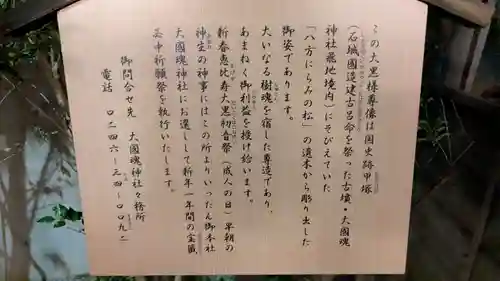 この大黒様尊像は国史跡甲塚
(石城國造建古呂命を祭った古墳・大國魂
神社飛地境内)にそびえていた
「八方にらみの松」の遺木から彫り出した
御姿であります。
大いなる樹魂を宿した尊造であり、
あまねく御利益を授け給います。
新春恵比寿大黒初音祭(成人の日)早朝の
神宝の神事にはこの所よりいったん御本社
大國魂神社にお遷しして新年一年間の宝箴
等申祈願祭を執行いたします。
御問合せ先 大國魂神社々務所
電話 〇二四六〜三四〜〇〇九二